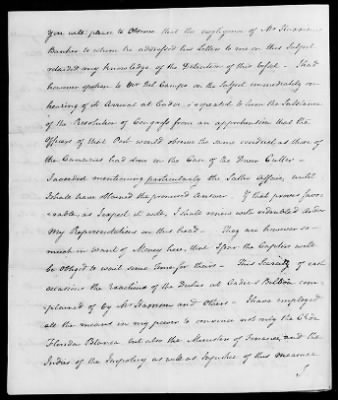 you will please to observe that the negligence of Mr Harrison
Banker to whom he addressed his Letters to me on this Subject
retarded my knowledge of the Detention of this Vessel. I had
however spoken to Mr Del Campo on the Subject immediately on
hearing of its Arrival at Cadiz, & repeated to him the Substance
of the Resolution of Congress from an apprehension that the
Officers of that Port would observe the same conduct as those of
the Canaries had done in the Case of the Dover Cutter
I avoided mentioning particularly the latter Affair, until
I shall have obtained the promised Answer. If that proves favor-
-able, as I expect it will, I shall renew with redoubled Ardor
my Representations on this head. They are however so
much in want of Money here, that I fear the Captors will
be obliged to wait some time for theirs. This Scarcity of cash
occasions the exactions of the Duties at Cadiz & Bilboa com-
plained of by Mr Harrison and Others. I have employed
all the means in my power to convince not only the Cte de
Florida Blanca but also the Minister of Finance, and the
Indies of the Impolicy as well as Injustice of this measure